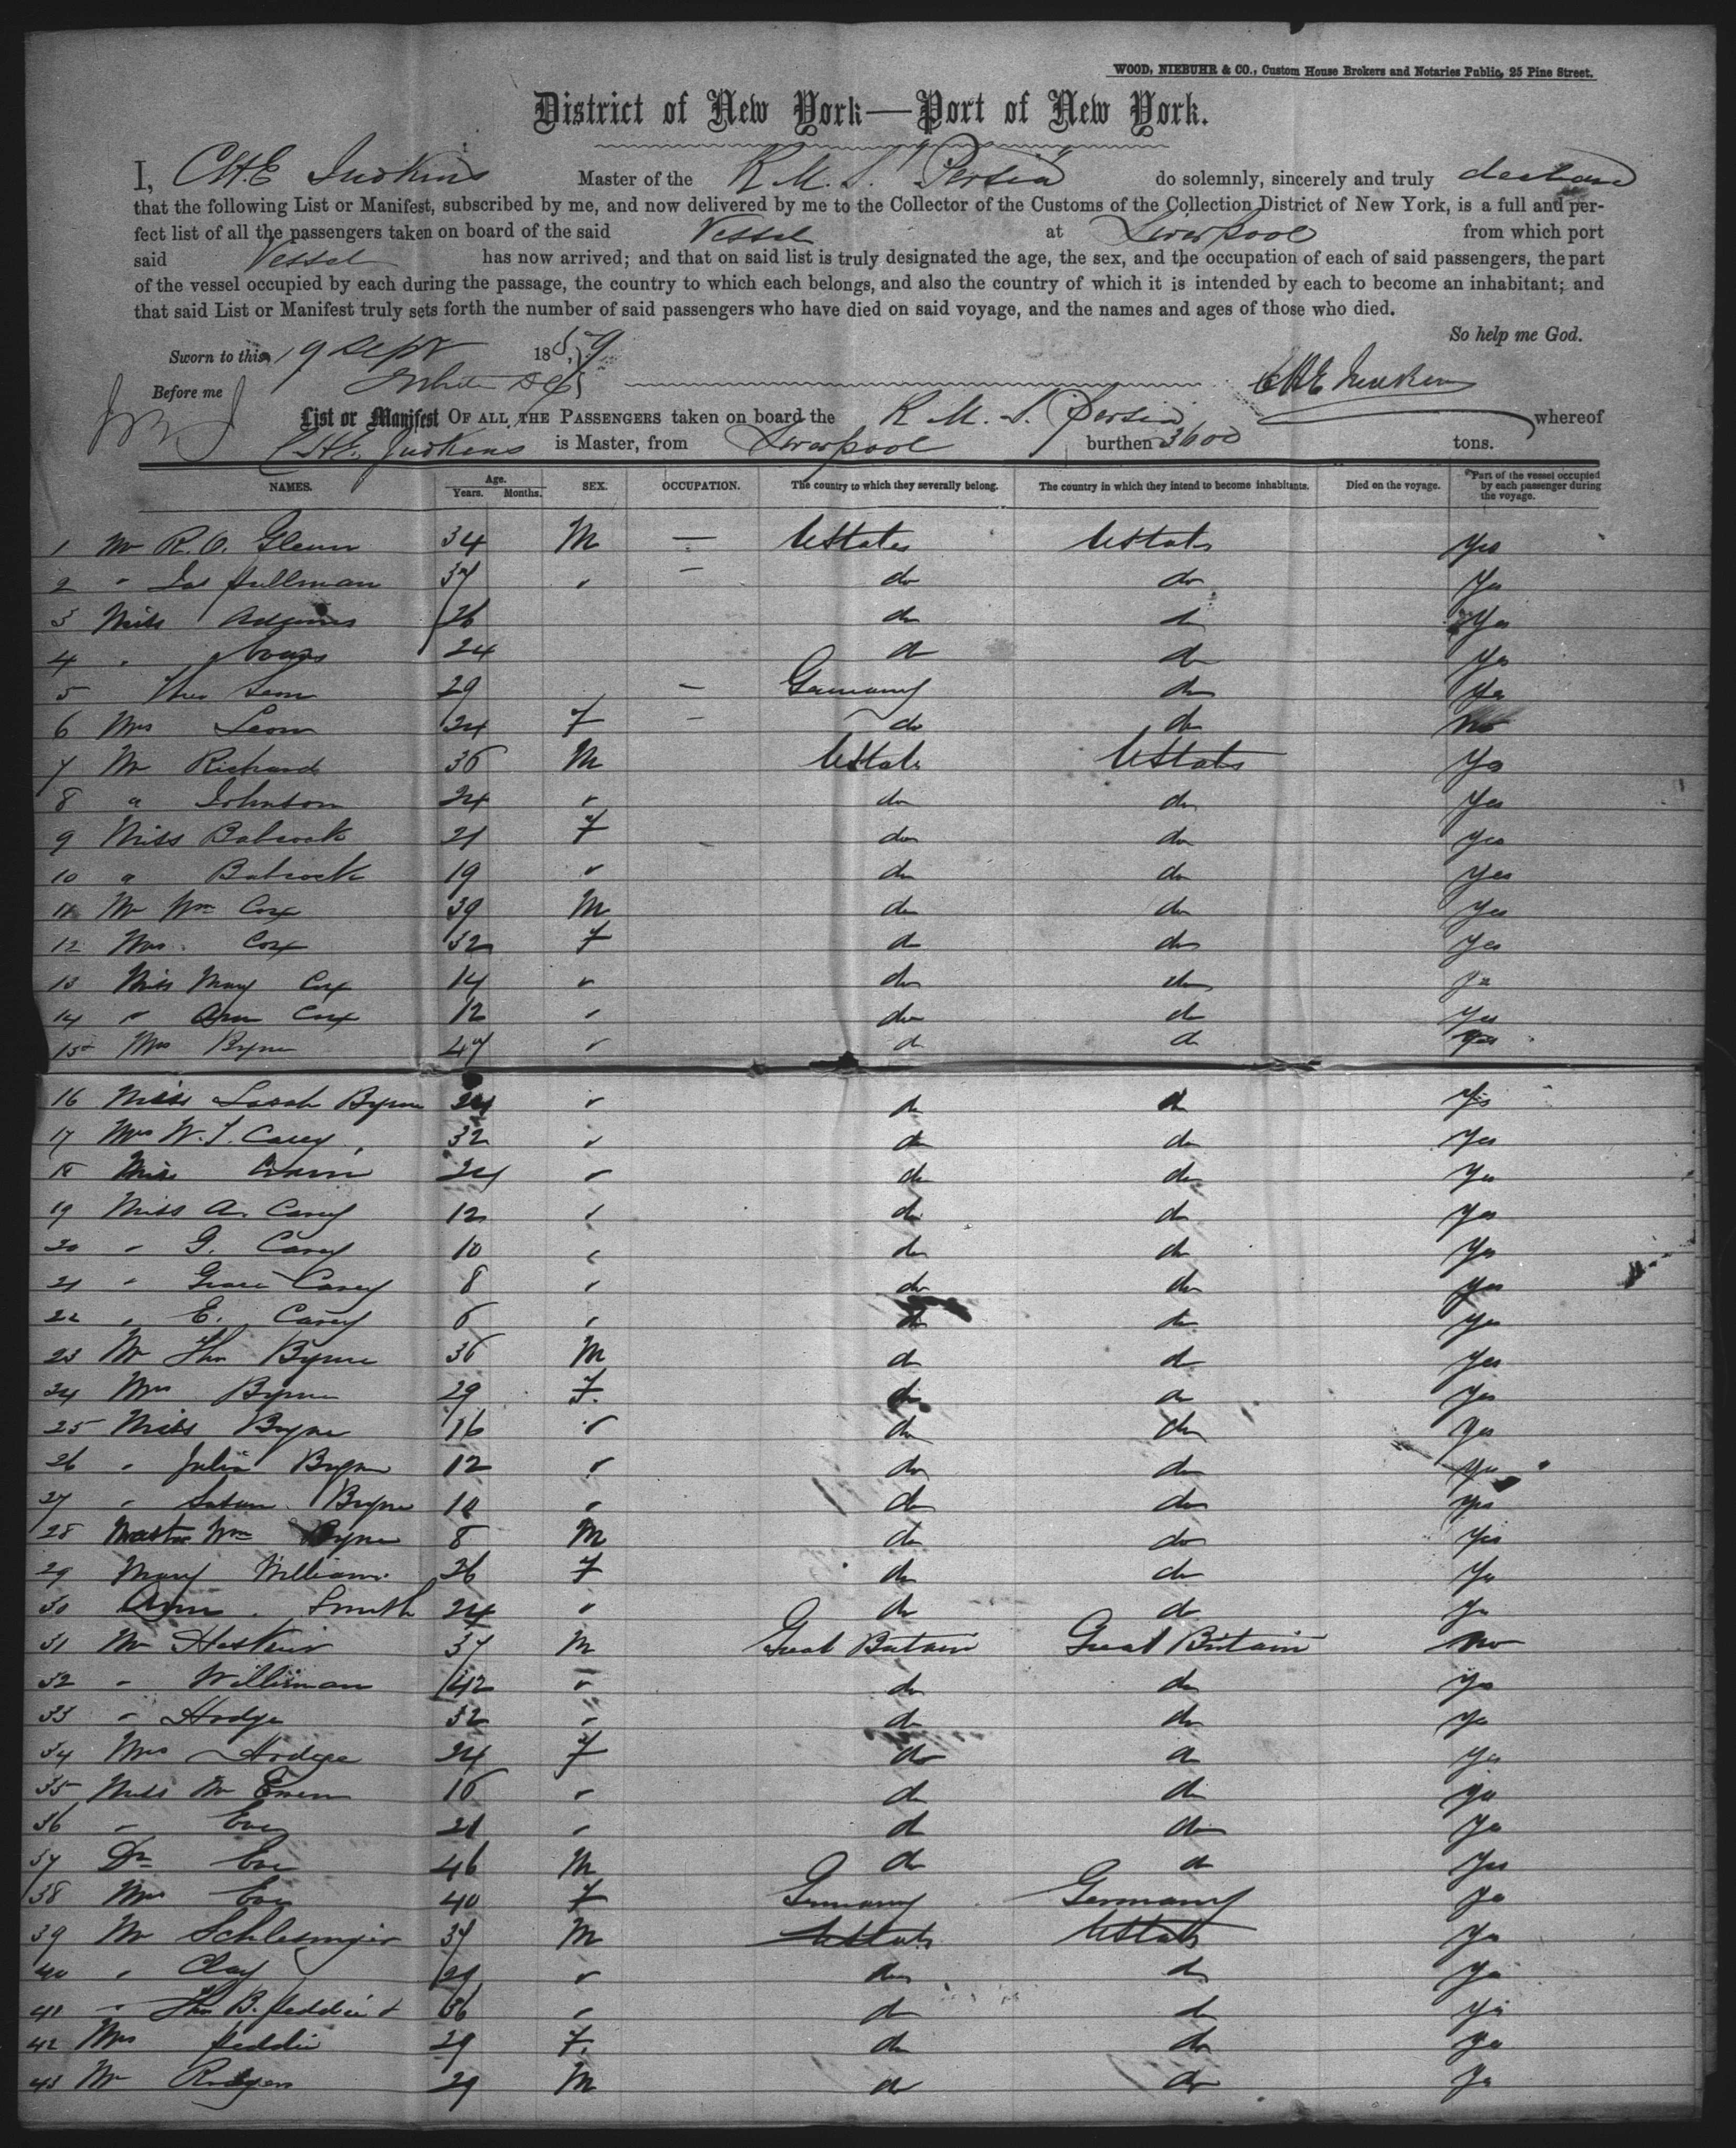 WOOD, NIEBUHR & CO., Custom House Brokers and Notaries Public, 25 Pine Street.
District of New York—Port of New York.
I, C.H.E. Judkins Master of the R.M.S. "Persia" do solemnly, sincerely and truly declare
that the following List or Manifest, subscribed by me, and now delivered by me to the Collector of the Customs of the Collection District of New York, is a full and per-
fect list of all the passengers taken on board of the said Vessel at Liverpool from which port
said Vessel has now arrived; and that on said list is truly designated the age, the sex, and the occupation of each of said passengers, the part
of the vessel occupied by each during the passage, the country to which each belongs, and also the country of which it is intended by each to become an inhabitant; and
that said List or Manifest truly sets forth the number of said passengers who have died on said voyage, and the names and ages of those who died.
So help me God.
Sworn to this 19 Sept 1859
Before me CHE Judkins
List or Manifest OF ALL THE PASSENGERS taken on board the R.M.S. Persia whereof
C.H.E. Judkins is Master, from Liverpool burthen 3600 tons.
NAMES. Age. Years. Months. SEX. OCCUPATION. The country to which they severally belong. The country in which they intend to become inhabitants. Died on the voyage. Part of the vessel occupied by each passenger during the voyage.
1 Mr R.O. Glenn 34 M — UStates UStates Yes
2 " Jas Pullman 37 " — do do Yes
3 Miss Adams 26 do do Yes
4 " 24 do do Yes
5 Theo Leon 29 " — Germany do Yes
6 Mrs Leon 24 F — do do No
7 Mr Richards 36 M UStates UStates Yes
8 " Johnson 24 " do do Yes
9 Miss Babcock 21 F do do Yes
10 " Babcock 19 " do do Yes
11 Mr Wm Cox 39 M do do Yes
12 Mrs Cox 32 F do do Yes
13 Miss Mary Cox 14 " do do Yes
14 " Ann Cox 12 " do do Yes
15 Mrs Byrne 47 " do do Yes
16 Miss Sarah Byrne 24 " do do Yes
17 Mrs W.T. Casey 32 " do do Yes
18 Miss 24 " do do Yes
19 Miss A. Casey 12 " do do Yes
20 " G. Casey 10 " do do Yes
21 " Grace Casey 8 " do do Yes
22 " E. Casey 6 " do do Yes
23 Mr Thos Byrne 36 M do do Yes
24 Mrs Byrne 29 F. do do Yes
25 Miss Byrne 16 " do do Yes
26 " Julia Byrne 12 " do do Yes
27 " Susan Byrne 10 " do do Yes
28 Master Wm Byrne 8 M do do Yes
29 Mary Williams 26 F do do Yes
30 Ann Smith 24 " do do Yes
31 Mr Hoskins 37 M Great Britain Great Britain No
32 " Willisman 42 " do do Yes
33 " Hodge 32 " do do Yes
34 Mrs Hodge 24 F do do Yes
35 Miss 16 " do do Yes
36 " Eve 21 " do do Yes
37 Dr Eve 46 M do do Yes
38 Mrs Eve 40 F Germany Germany Yes
39 Mr Schlesinger 37 M UStates UStates Yes
40 " Clay 29 " do do Yes
41 " Thos B. Peddie 36 " do do Yes
42 Mrs Peddie 29 F. do do Yes
43 Mr Rodgers 29 M do do Yes